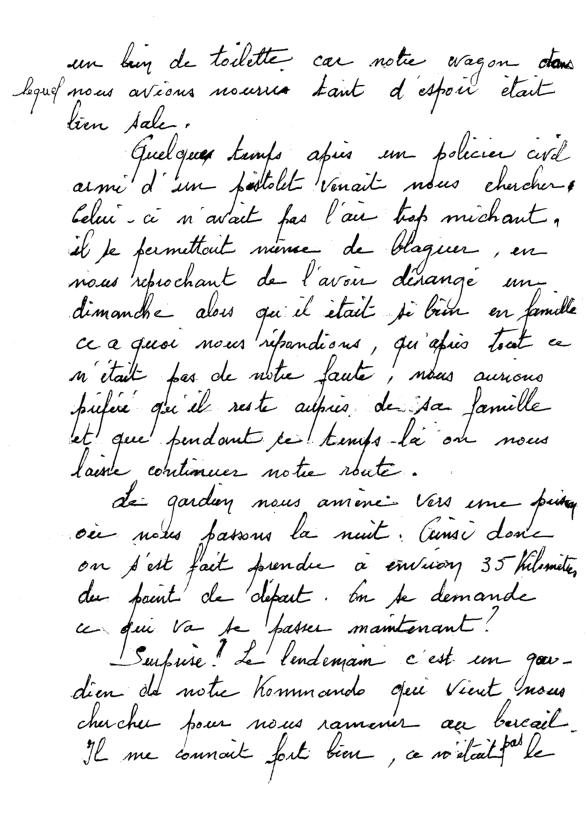 un brin de toilette car notre wagon dans
lequel nous avions nourris tant d'espoir était
bien sale.
Quelques temps après un policier civil
armé d'un pistolet venait nous chercher.
Celui-ci n'avait pas l'air trop méchant,
il se permettait même de blaguer, en
nous reprochant de l'avoir dérangé un
dimanche alors qu'il était si bien en famille
ce a quoi nous répondions, qu'après tout ce
n'était pas de notre faute, nous aurions
préféré qu'il reste auprès de sa famille
et que pendant ce temps-là on nous
laisse continuer notre route.
Le gardien nous amène vers une prison
où nous passons la nuit. Ainsi donc
on s'est fait prendre à environ 35 Kilomètres
du point de départ. On se demande
ce qui va se passer maintenant?
Surprise! Le lendemain c'est un gar-
dien de notre Kommando qui vient nous
chercher pour nous ramener au bercail.
Il me connait fort bien, ce n'était pas le